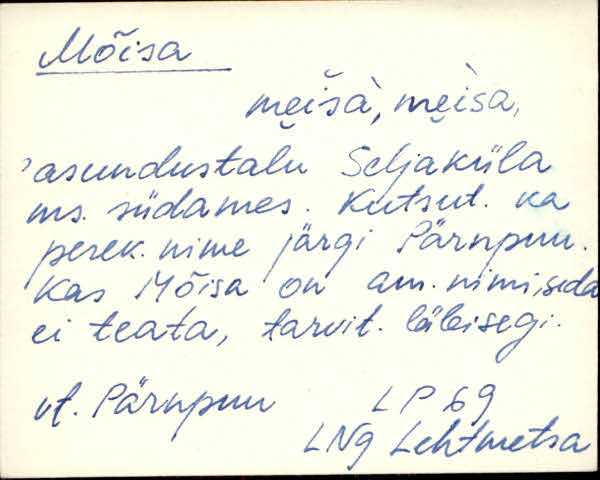 Mõisa
mẹišà, mẹìsa,
'asundustalu Seljaküla
ms. südames. Kutsut. ka
perek. nime järgi Pärnpuu.
Kas Mõisa on am. nimi, seda
ei teata, tarvit. läbisegi.
vt. Pärnpuu LP 69
LNg Lehtmetsa